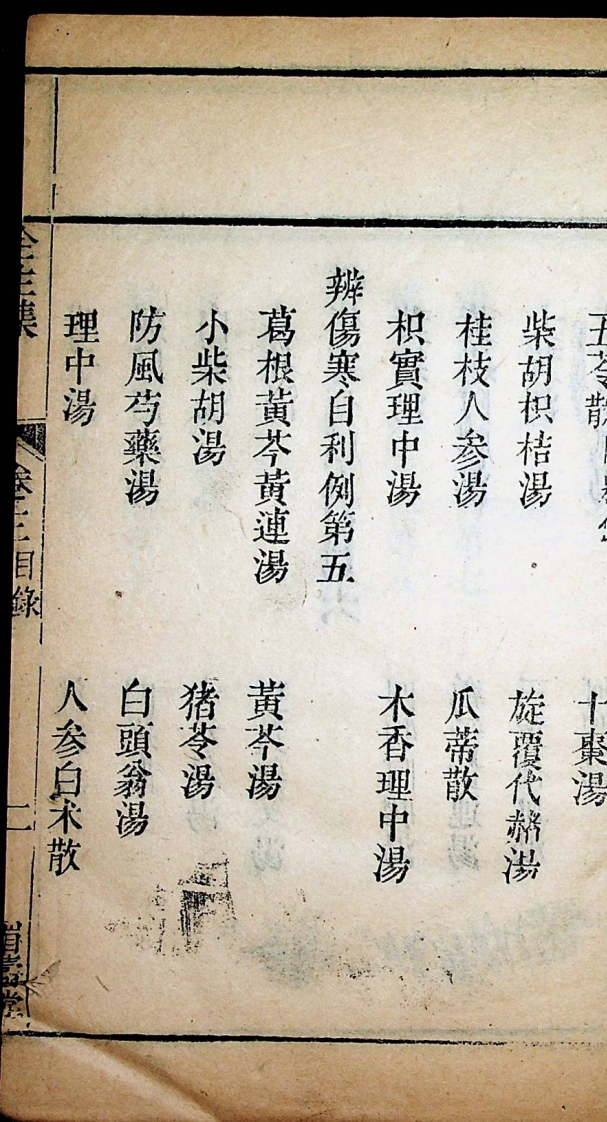 五苓散
十棗湯
柴胡枳桔湯
旋覆代赭湯
桂枝人参湯
瓜蒂散
枳實理中湯
木香理中湯
辨傷寒自利例第五
葛根黃芩黃連湯
黃芩湯
小柴胡湯
猪苓湯
防風芍藥湯
白頭翁湯
理中湯
人参白术散
全生集
卷三目錄
二